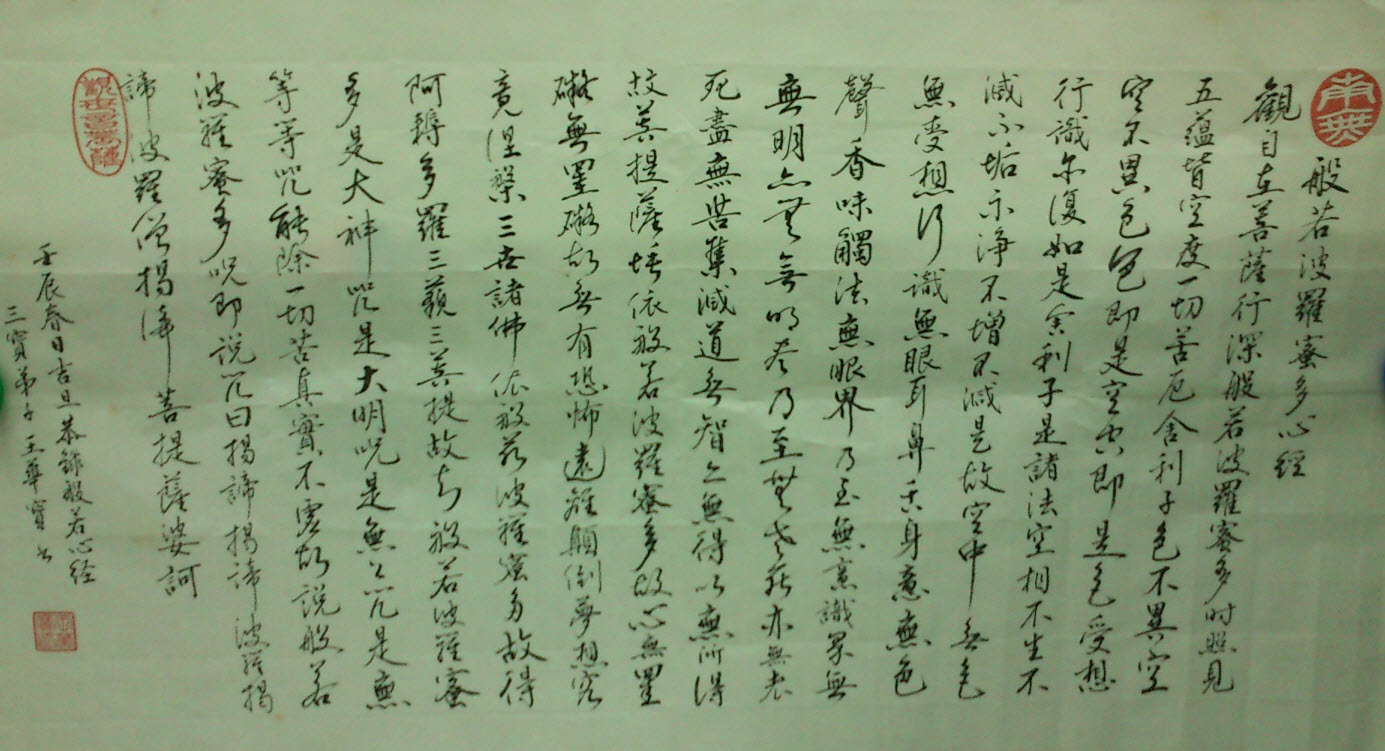 南無
般若波羅蜜多心經
觀自在菩薩行深般若波羅蜜多时照見
五蘊皆空度一切苦厄舍利子色不異空
空不異色色即是空空即是色受想
行識亦復如是舍利子是諸法空相不生不
滅不垢不淨不增不減是故空中無色
無受想行識無眼耳鼻舌身意無色
聲香味觸法無眼界乃至無意識界無
無明亦無無明尽乃至無老死亦無老
死盡無苦集滅道無智亦無得以無所得
故菩提薩埵依般若波羅蜜多故心無罣
礙無罣礙故無有恐怖遠離顛倒夢想究
竟涅槃三世諸佛依般若波羅蜜多故得
阿耨多羅三藐三菩提故知般若波羅蜜
多是大神咒是大明咒是無上咒是無
等等咒能除一切苦真實不虛故說般若
波羅蜜多咒即说咒曰揭諦揭諦波羅揭
諦波羅僧揭諦菩提薩婆訶
觀世音菩薩
壬辰春日吉旦恭錄般若心经
三寶弟子王華寶书